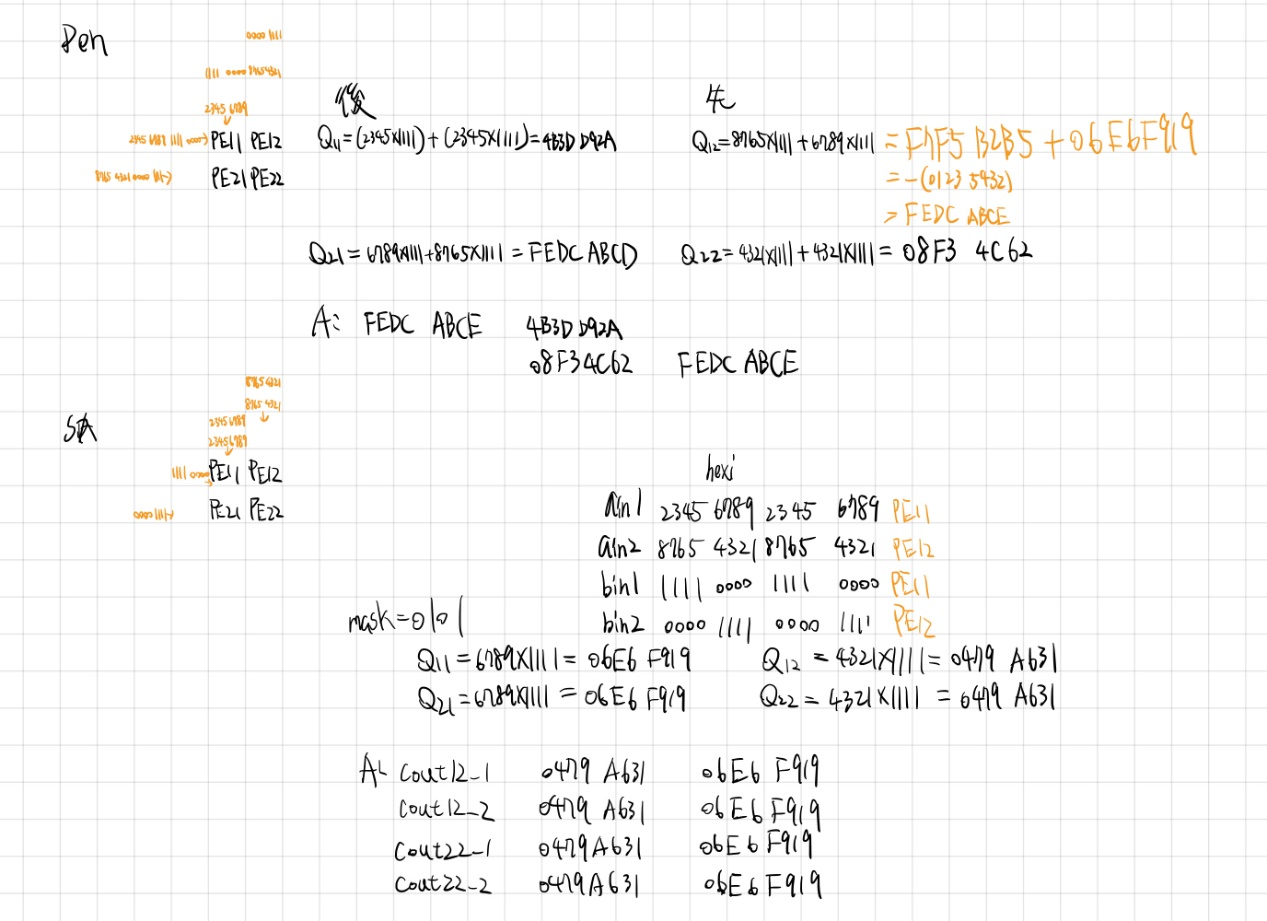 Den
0000 1111
1111 0000 8765 4321
2345 6789
後
先
2345 6789 1111 0000 → PE11 PE12
Q11 = (2345×1111) + (2345×1111) = 4B3D D92A
Q12 = 8765×1111 + 6789×1111 = F7F5 B2B5 + 06E6F919
8765 4321 0000 1111 → PE21 PE22
= -(0123 5432)
= FEDC ABCE
Q21 = 6789×1111 + 8765×1111 = FEDC ABCD
Q22 = 4321×1111 + 4321×1111 = 08F3 4C62
A: FEDC ABCE 4B3D D92A
08F34C62 FEDC ABCE
8765 4321
8765 4321
SA
2345 6789 ↓
2345 6789
hexi
1111 0000 PE11 PE12
ain1 2345 6789 2345 6789 PE11
0000 1111 0000 PE21 PE22
ain2 8765 4321 8765 4321 PE12
bin1 1111 0000 1111 0000 PE11
mask = 0101
bin2 0000 1111 0000 1111 PE12
Q11 = 6789×1111 = 06E6 F919
Q12 = 4321×1111 = 0479 A631
Q21 = 6789×1111 = 06E6 F919
Q22 = 4321×1111 = 0479 A631
A: Cout12_1 0479 A631 06E6 F919
Cout12_2 0479 A631 06E6 F919
Cout22_1 0479A631 06E6 F919
Cout22_2 0479A631 06E6 F919